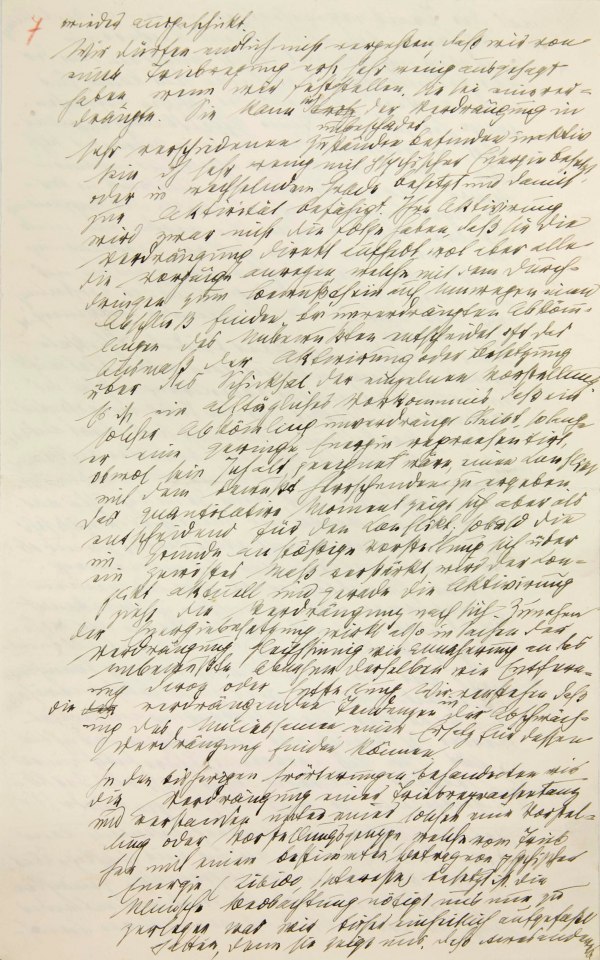 7 wieder ausgeschickt.
Wir dürfen endlich nicht vergessen, daß wir von
einer Triebregung erst sehr wenig ausgesagt
haben wenn wir feststellen, sie sei eine ver-
drängte. Sie kann sich trotz der Verdrängung in
unbeschadet
sehr verschiedenen Zuständen befinden, inaktiv
sein dh sehr wenig mit psychischer Energie besetzt,
oder in wechselndem Grade besetzt und damit
zur Aktivität befähigt. Ihre Aktivirung
wird zwar nicht die Folge haben, daß sie die
Verdrängung direkt aufhebt, wol aber alle
die Vorgänge anregen welche mit dem Durch-
dringen zum Bewußtsein auf Umwegen einen
Abschluß finden. Bei unverdrängten Abkömm-
lingen des Unbewußten entscheidet oft das
Ausmaß der Aktivirung oder Besetzung
über das Schicksal der einzelnen Vorstellung.
Es ist ein alltägliches Vorkommnis daß ein
solcher Abkömmling unverdrängt bleibt, solange
er eine geringe Energie repraesentirt,
obwol sein Inhalt geeignet wäre, einen Konflikt
mit dem bewußt Herrschenden zu ergeben.
Das quantitative Moment zeigt sich aber als
entscheidend für den Konflikt; sobald die
im Grunde anstößige Vorstellung sich über
ein gewisses Maß verstärkt wird der Kon-
flikt aktuell und gerade die Aktivirung
zieht die Verdrängung nach sich. Zunahme
der Energiebesetzung wirkt also in Sachen der
Verdrängung gleichsinnig wie Annäherung an das
Unbewußte, Abnahme derselben wie Entfern-
ung davon oder Entstellung. Wir verstehen daß
die verdrängenden Tendenzen in der Abschwäch-
ung des Unliebsamen einen Ersatz für dessen
Verdrängung finden können.
In den bisherigen Erörterungen behandelten wir
die Verdrängung einer Triebrepraesentanz
und verstanden unter einer solchen eine Vorstel-
lung oder Vorstellungsgruppe welche vom Trieb
her mit einem bestimmten Betrag von psychischer
Energie (Libido, Interesse) besetzt ist. Die
klinische Beobachtung nötigt uns nun zu
zerlegen was wir bisher einheitlich aufgefaßt
hatten, denn sie zeigt uns, daß etwas anderes